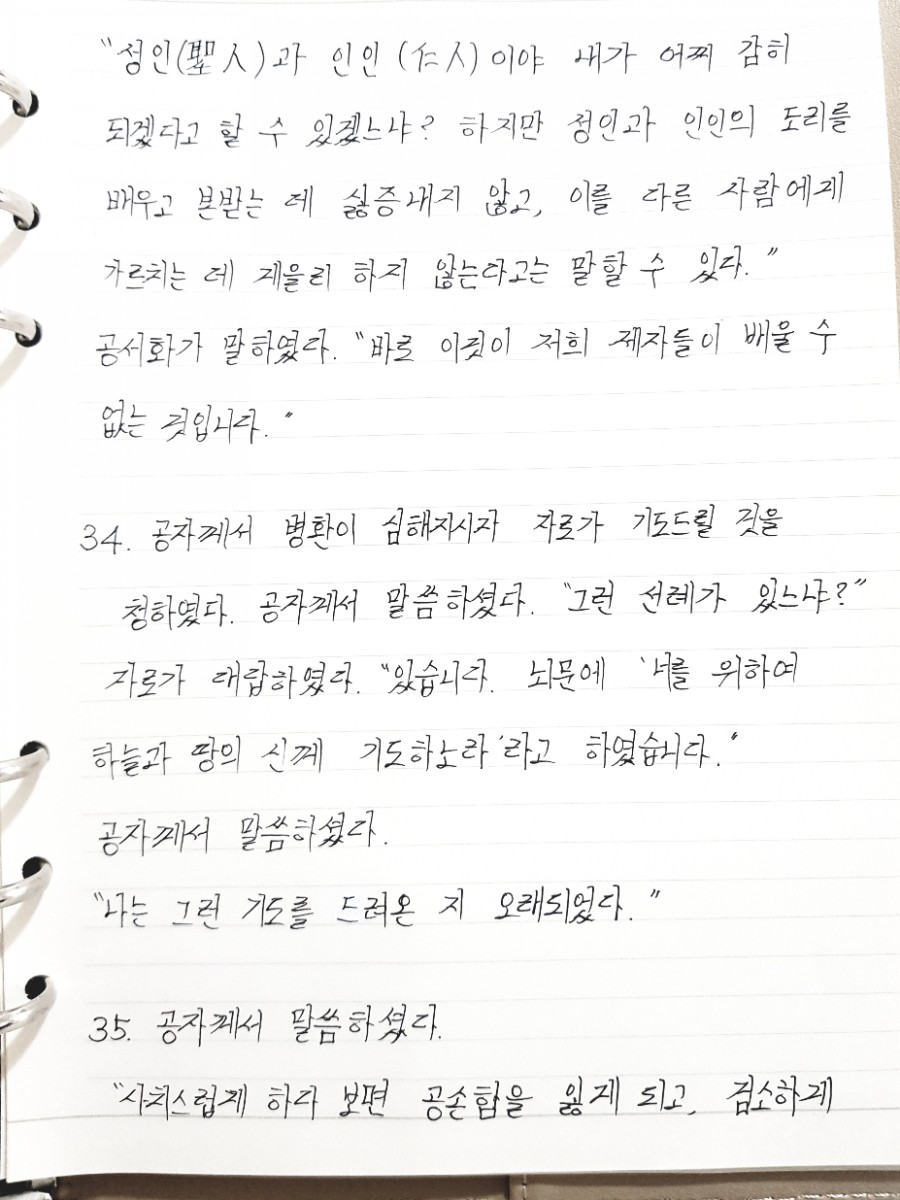 "성인(聖人)과 인인(仁人)이야 내가 어찌 감히
되겠다고 할 수 있겠느냐? 하지만 성인과 인인의 도리를
배우고 본받는 데 싫증내지 않고, 이를 다른 사람에게
가르치는 데 게을리 하지 않는다고는 말할 수 있다."
공서화가 말하였다. "바로 이것이 저희 제자들이 배울 수
없는 것입니다."
34. 공자께서 병환이 심해지시자 자로가 기도드릴 것을
청하였다. 공자께서 말씀하셨다. "그런 선례가 있느냐?"
자로가 대답하였다. "있습니다. 뇌문에 '너를 위하여
하늘과 땅의 신께 기도하노라'라고 하였습니다."
공자께서 말씀하셨다.
"나는 그런 기도를 드려온 지 오래되었다."
35. 공자께서 말씀하셨다.
"사치스럽게 하다 보면 공손함을 잃게 되고, 검소하게